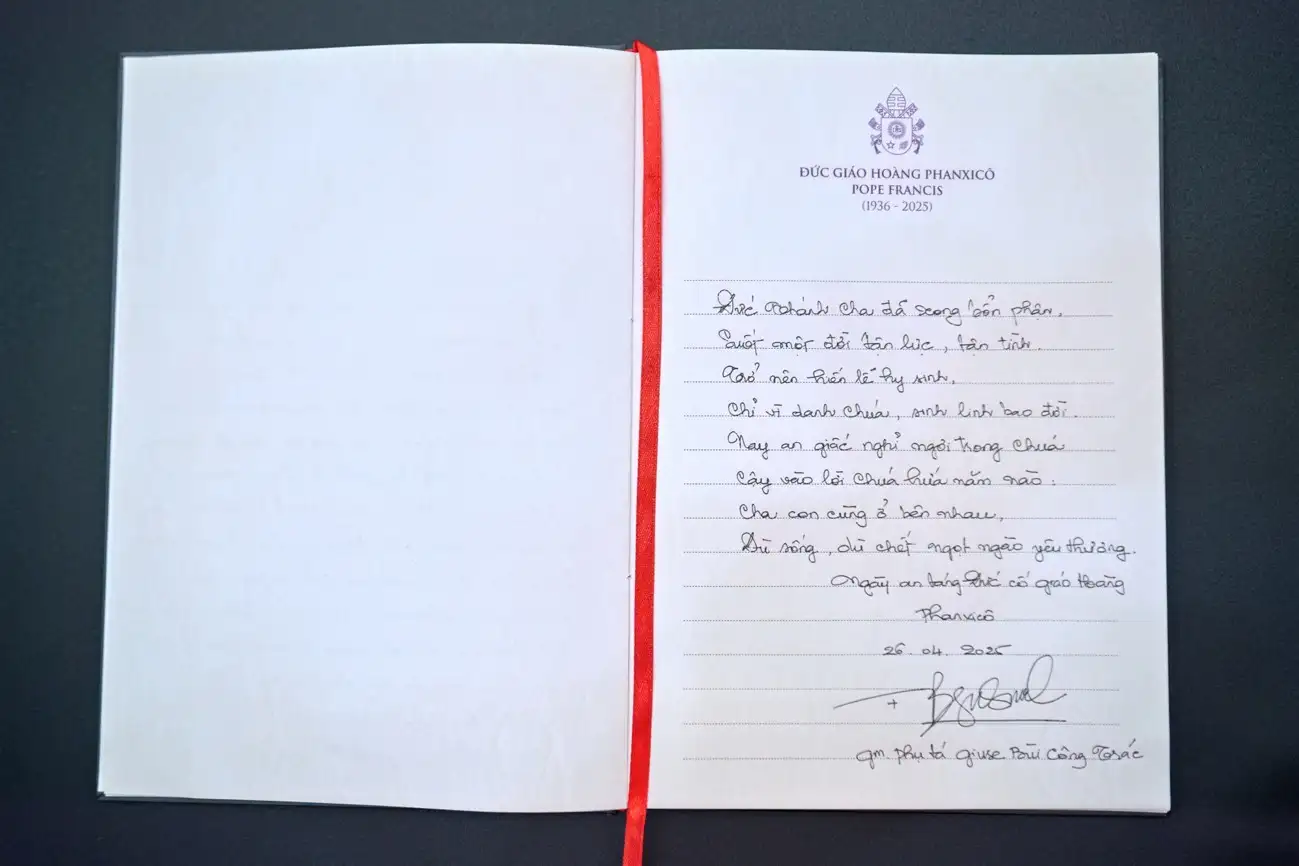 ĐỨC GIÁO HOÀNG PHANXICÔ
POPE FRANCIS
(1936 - 2025)
Đức Thánh Cha đã xong bổn phận,
Suốt một đời tận lực, tận tình.
Trở nên hiến lễ hy sinh,
Chỉ vì danh Chúa, sinh linh bao đời.
Nay an giấc nghỉ ngơi trong Chúa
Cậy vào lời Chúa hứa năm nào:
Cha con cùng ở bên nhau,
Dù sống, dù chết ngọt ngào yêu thương.
Ngày an táng Đức cố giáo Hoàng
Phanxicô
26. 04. 2025
+
gm. phụ tá Giuse Bùi Công Trác